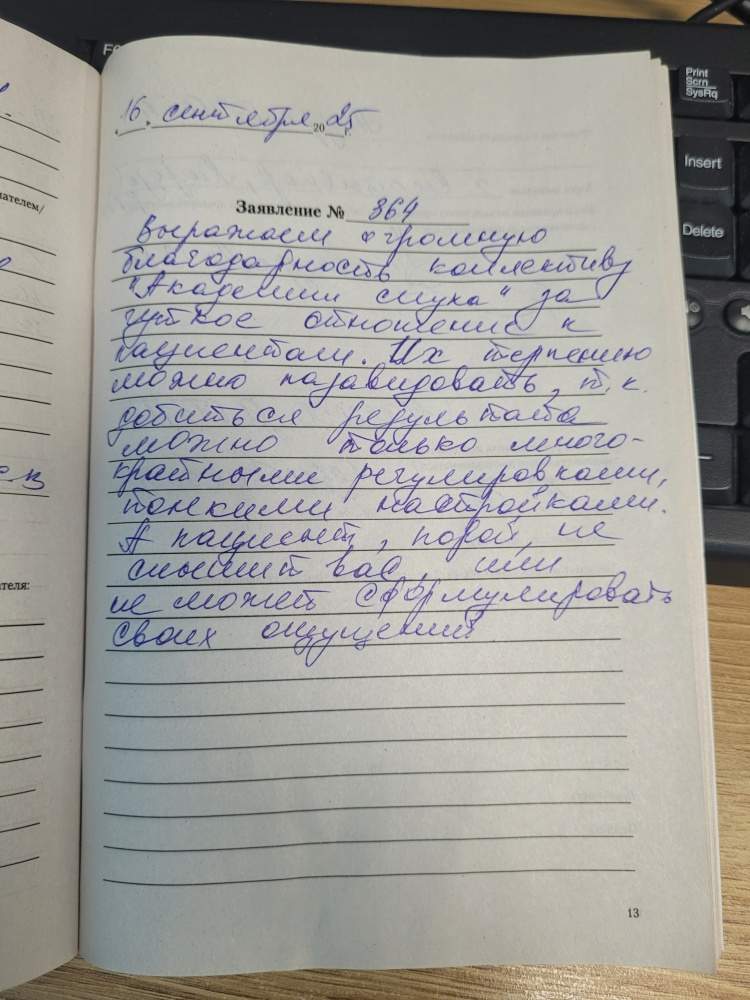 16 сентября 2025 г.
Заявление № 364
Выражаем огромную
благодарность коллективу
"Академии слуха" за
чуткое отношение к
пациентам. Их терпению
можно позавидовать, т.к.
добиться результата
можно только много-
кратными регулировками,
тонкими настройками.
А пациент, порой, не
слышит вас, или
не может сформулировать
своих ощущений
13
ателем/
ателя:
Print
Scrn
SysRq
Insert
Delete